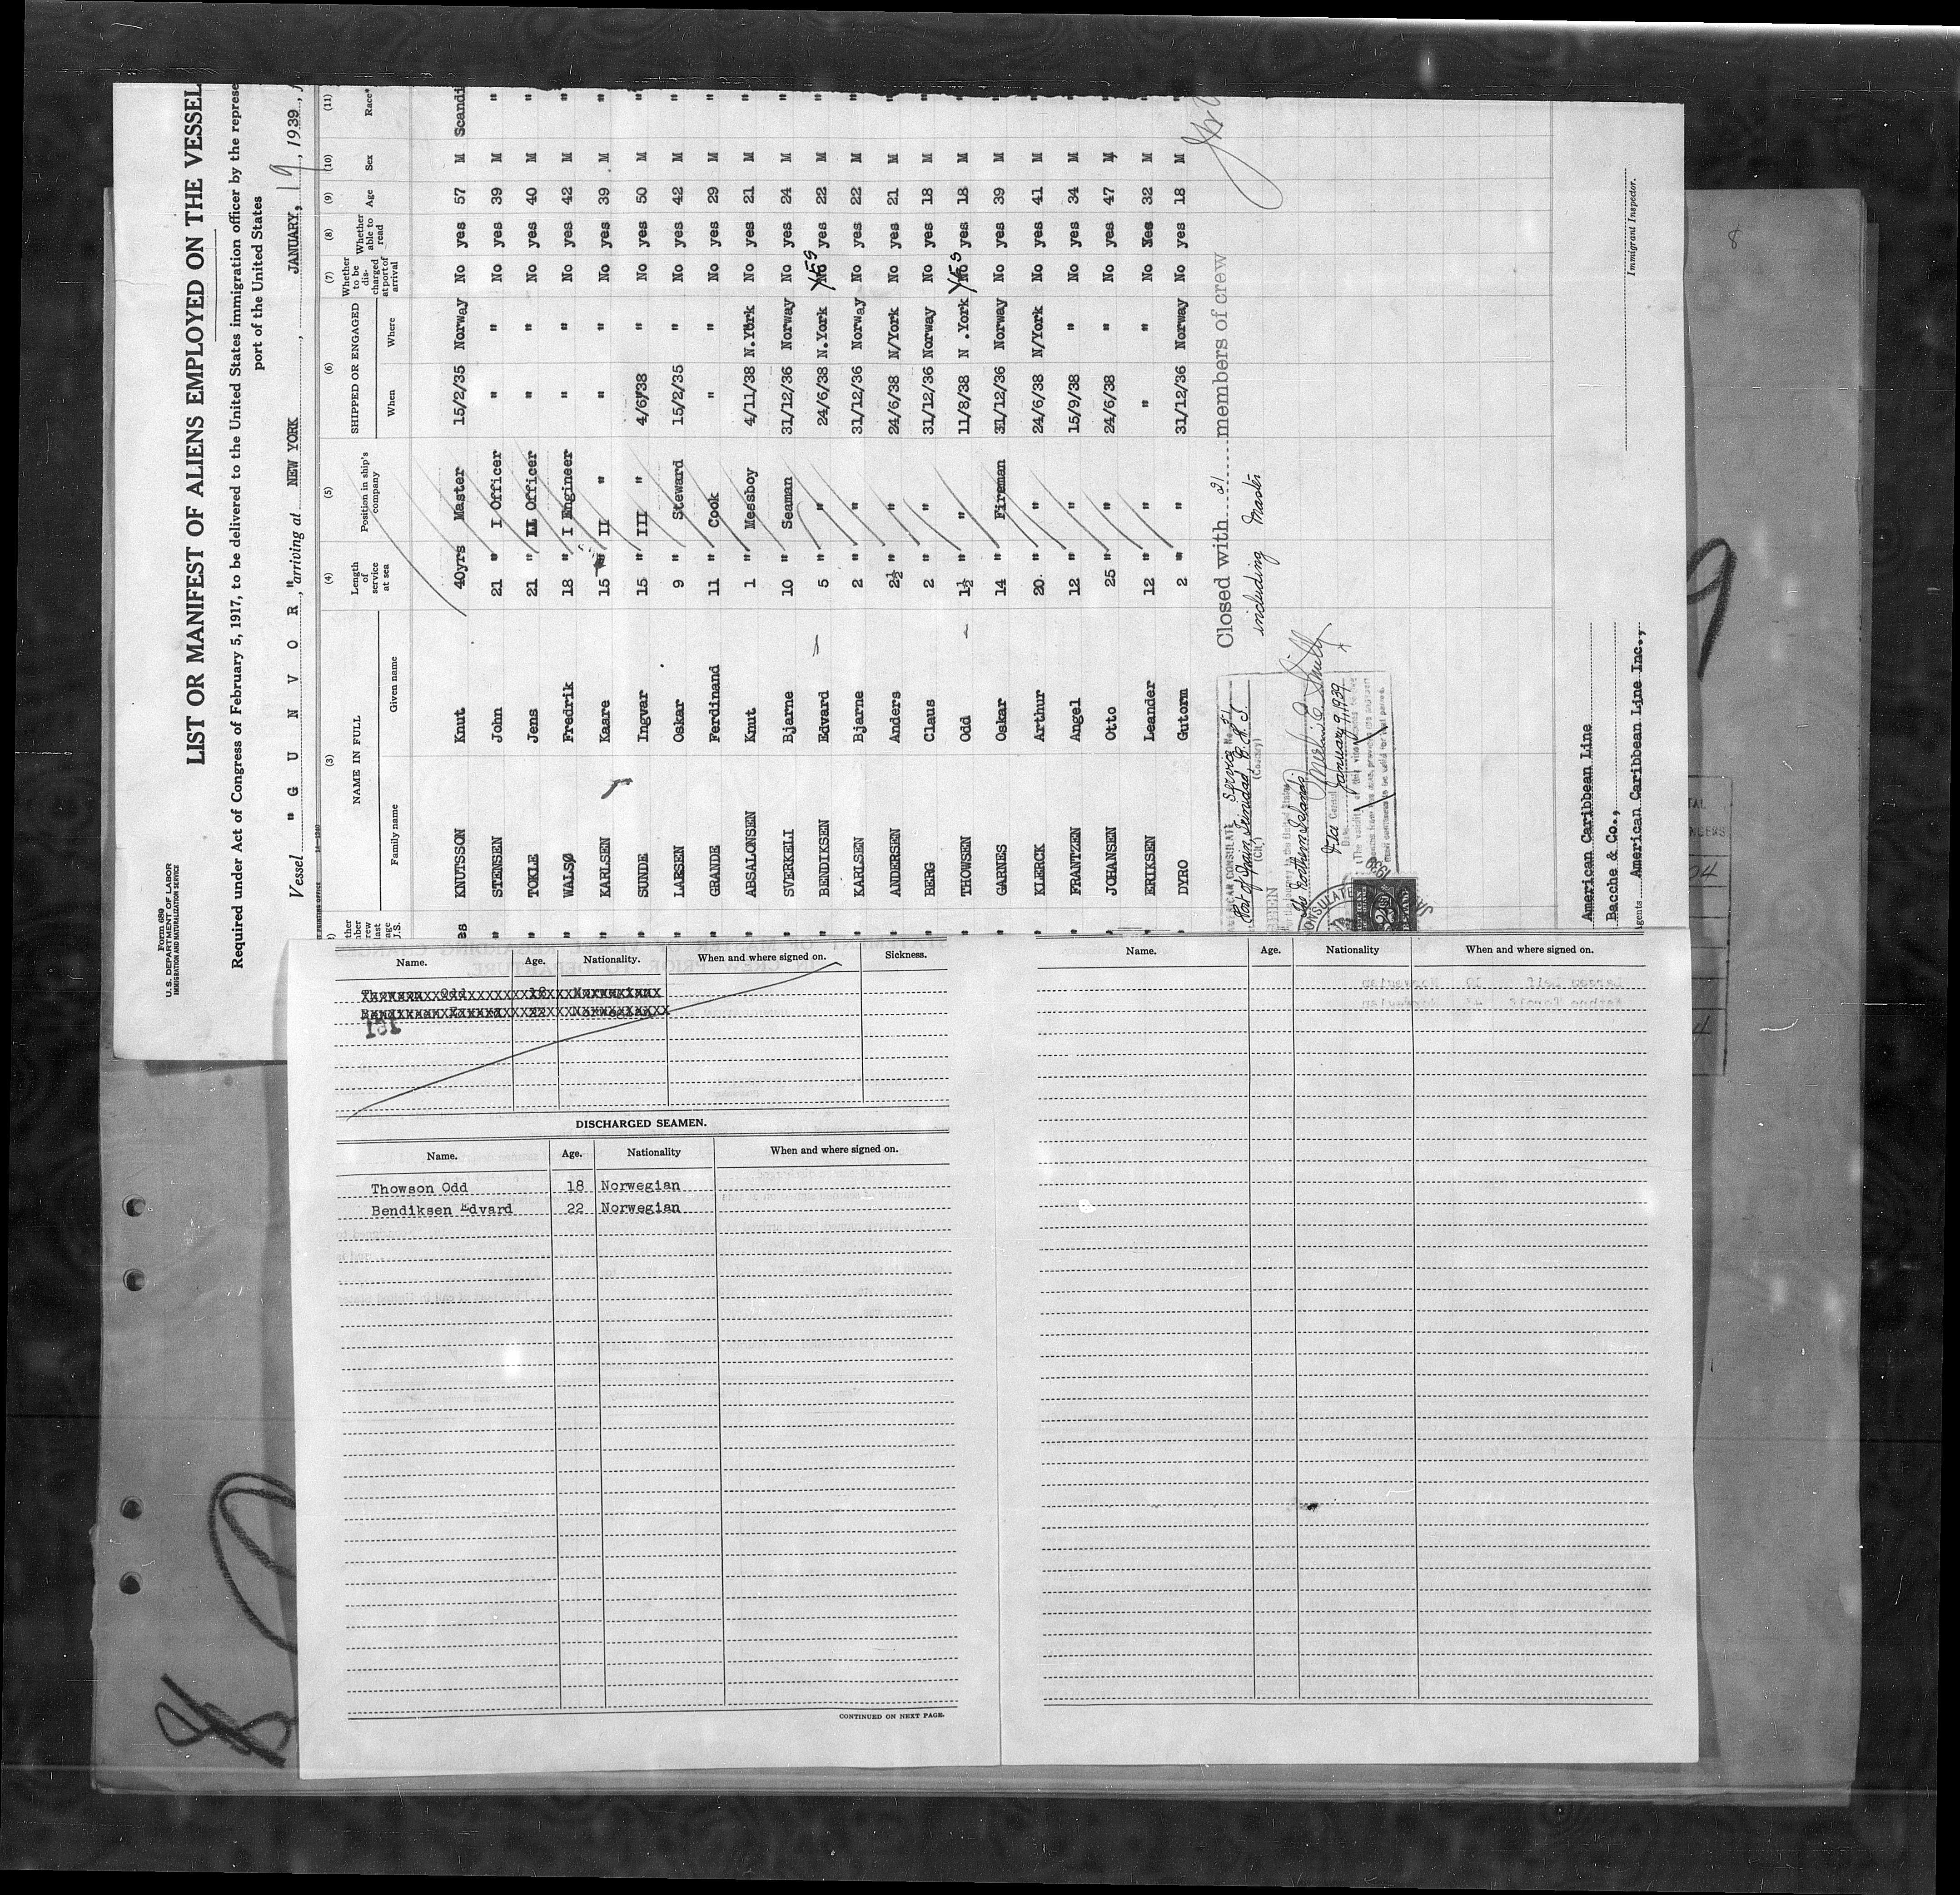 Form 689
U. S. DEPARTMENT OF LABOR
IMMIGRATION AND NATURALIZATION SERVICE
LIST OR MANIFEST OF ALIENS EMPLOYED ON THE VESSEL
Required under Act of Congress of February 5, 1917, to be delivered to the United States immigration officer by the represe
port of the United States
Vessel " G U N V O R ", arriving at NEW YORK, JANUARY, 19, 1939,
(3) (4) (5) (6) (7) (8) (9) (10) (11)
NAME IN FULL
Family name Given name
Length of service at sea
Position in ship's company
SHIPPED OR ENGAGED
When Where
Whether to be discharged at port of arrival
Whether able to read
Age
Sex
Race*
es KNUTSSON Knut 40yrs Master 15/2/35 Norway No yes 57 M Scandi
" STENSEN John 21 " I Officer " " No yes 39 M "
" TOKLE Jens 21 " II Officer " " No yes 40 M "
" WALSØ Fredrik 18 " I Engineer " " No yes 42 M "
" KARLSEN Kaare 15 " II " " " No yes 39 M "
" SUNDE Ingvar 15 " III " 4/6/38 " No yes 50 M "
" LARSEN Oskar 9 " Steward 15/2/35 " No yes 42 M "
" GRANDE Ferdinand 11 " Cook " " No yes 29 M "
" ABSALONSEN Knut 1 " Messboy 4/11/38 N.York No yes 21 M "
" SVERKELI Bjarne 10 " Seaman 31/12/36 Norway No yes 24 M "
" BENDIKSEN Edvard 5 " " 24/6/38 N.York No YES yes 22 M "
" KARLSEN Bjarne 2 " " 31/12/36 Norway No yes 22 M "
" ANDERSEN Anders 2½ " " 24/6/38 N/York No yes 21 M "
" BERG Claus 2 " " 31/12/36 Norway No yes 18 M "
" THOWSEN Odd 1½ " " 11/8/38 N .York No YES yes 18 M "
" GARNES Oskar 14 " Fireman 31/12/36 Norway No yes 39 M "
" KLERCK Arthur 20 " " 24/6/38 N/York No yes 41 M "
" FRANTZEN Angel 12 " " 15/9/38 " No yes 34 M "
" JOHANSEN Otto 25 " " 24/6/38 " No yes 47 M "
" ERIKSEN Leander 12 " " " " No Yes 32 M "
" DYRO Gutorm 2 " " 31/12/36 Norway No yes 18 M "
Closed with 21 members of crew
including Master
AMERICAN CONSULATE Service No.
Port of Spain, Trinidad, B.W.I.
(City) (Country)
SEEN
January 9, 1939
American Caribbean Line
Bacche & Co.,
American Caribbean Line Inc.,
Immigrant Inspector.
8
Name. Age. Nationality. When and where signed on. Sickness.
Thowson Odd 18 Norwegian
Bendiksen Edvard 22 Norwegian
151
DISCHARGED SEAMEN.
Name. Age. Nationality When and where signed on.
Thowson Odd 18 Norwegian
Bendiksen Edvard 22 Norwegian
CONTINUED ON NEXT PAGE.
Name. Age. Nationality When and where signed on.